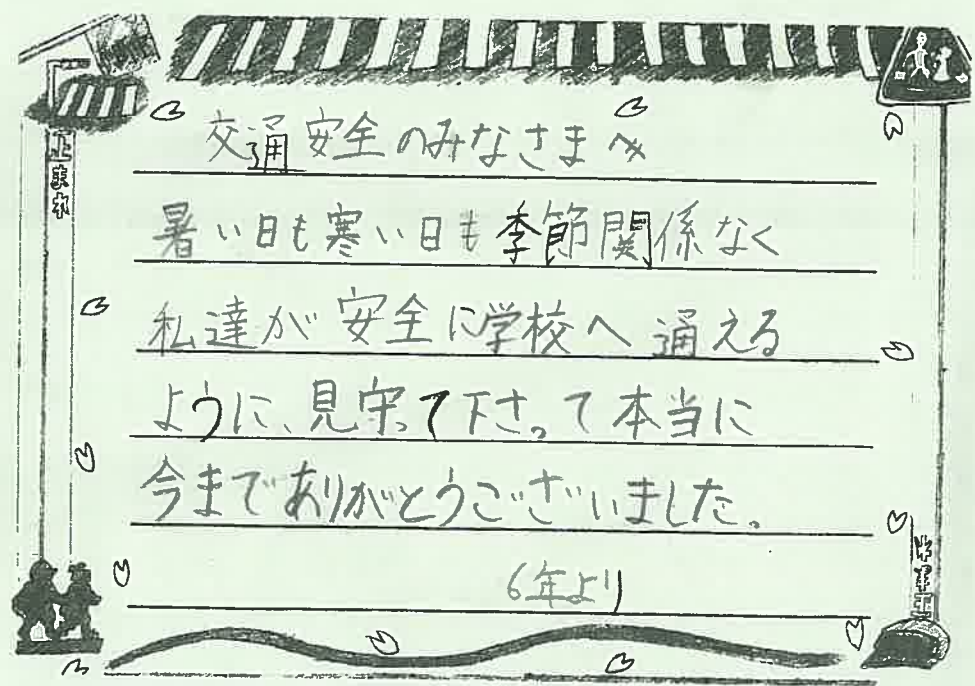 交通安全のみなさまへ
暑い日も寒い日も季節関係なく
私達が安全に学校へ通える
ように、見守って下さって本当に
今までありがとうございました。
6年より
止まれ
止まれ